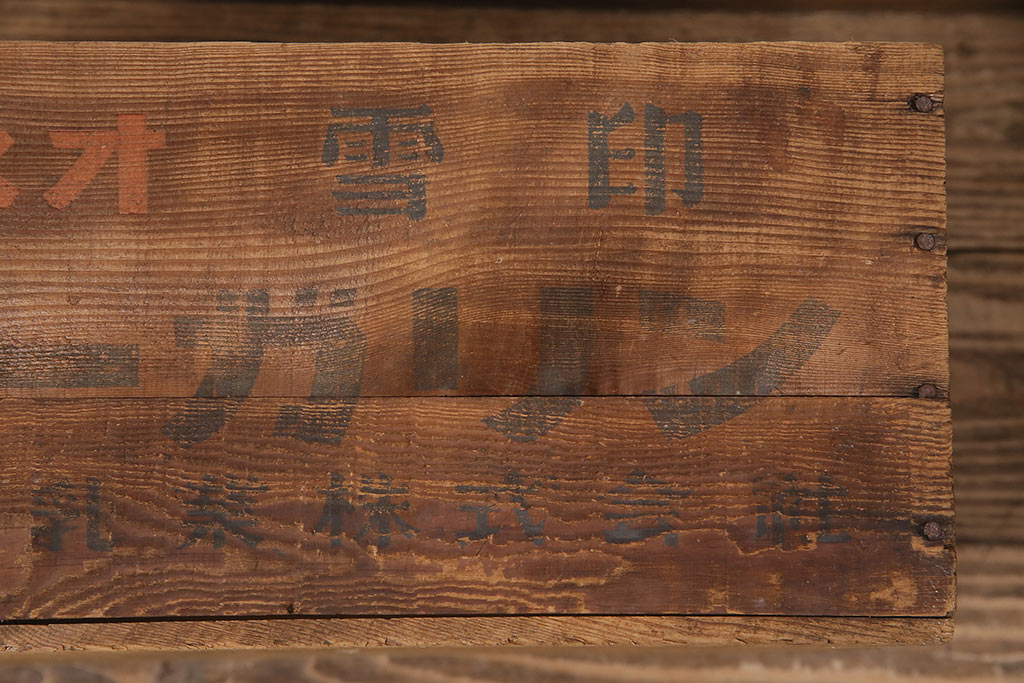 オ 雪印
ーガリン
乳業株式会社